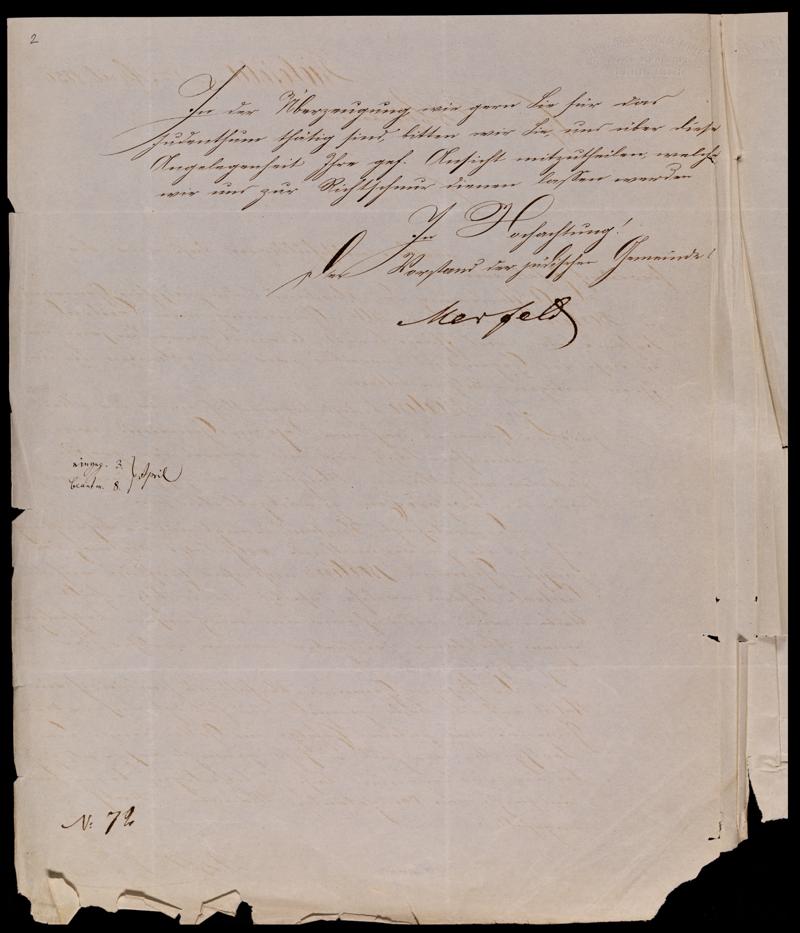 2
In der Überzeugung wie gern Sie für das
Judenthum thätig sind, bitten wir Sie, uns über diese
Angelegenheit Ihre gef. Ansicht mitzutheilen, welche
wir uns zur Richtschnur dienen lassen werden
In Hochachtung!
Der Vorstand der jüdischen Gemeinde!
Merfeld
eingeg. 3. } April
beantw. 8.
N: 72